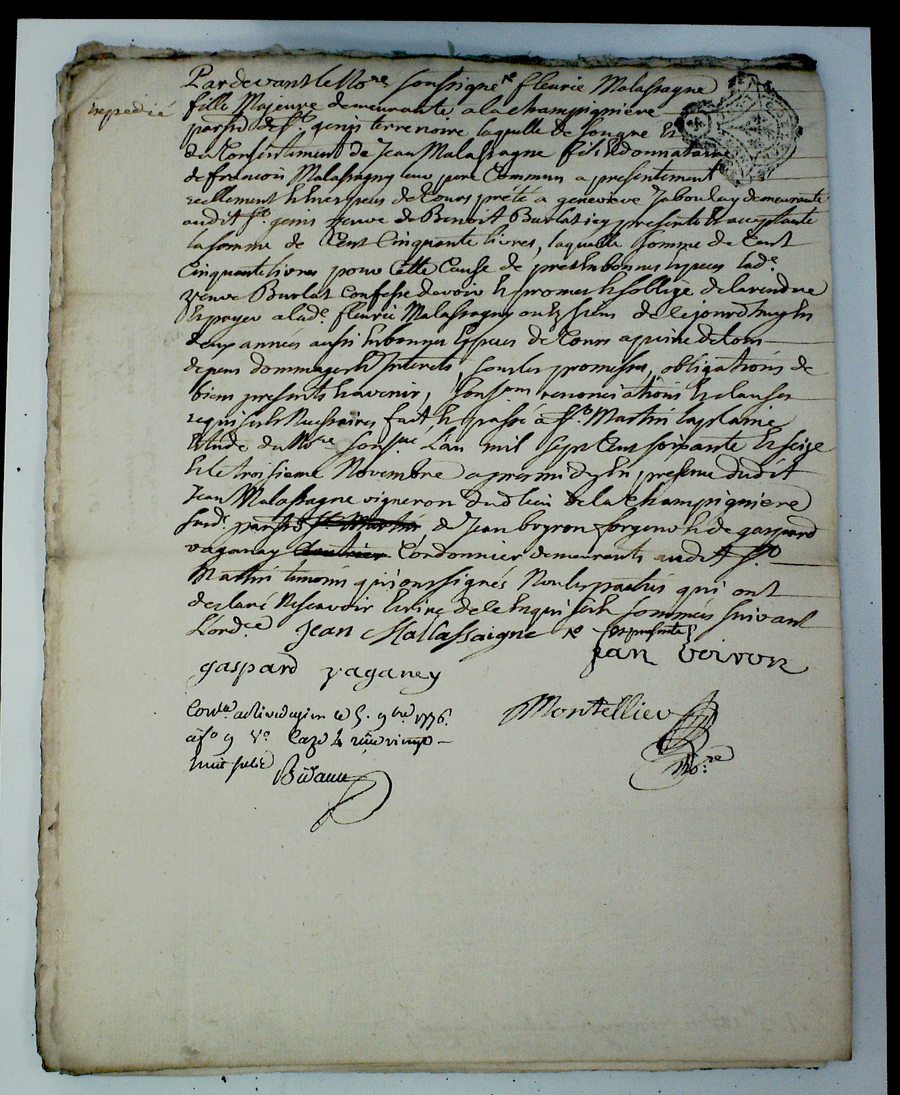 expedié
Pardevant le No.re soussigné R fut fleurie Malassagne
fille Majeure demeurante a la champignière
parsse de St. genis terrenoire laquelle de son gré et
du Consentement de Jean Malassagne fils et donnataire
de francois Malassagny leur pere Commun a presentement
reellement et en especes de Cours prété a genevieve Jaboulay demeurante
audit St. genis veuve de Benoit Burlat icy presente et acceptante
la somme de Cent Cinquante livres, laquelle somme de Cent
Cinquante livres pour Cette Cause de prest en bonnes especes lad.e
veuve Burlat Confesse devoir et promet et s'oblige de la rendre
et payer a lad.e fleurie Malassagny ou es siens de ce jourd'huy en
deux années aussi en bonnes especes de Cours a peine de tous
depens dommages et Interets, sous les promesses, obligations de
biens presents et avenir, soumissions renonciations et clauses
requises et Necessaires fait et passé a St. Martin la plaine
Etude du No.re sousg.né L'an mil sept Cent soixante et seize
et le troisieme Novembre apres midy en presence dudit
Jean Malassagne vigneron dud lieu de la champignière
susd. parsse St Martin, de Jean boyron forgeur et de gaspard
vaganay Cordonnier demeurants audit St.
Martin temoins qui ont signés Non les parties qui ont
declaré Ne scavoir Ecrire de ce Enquises et sommées suivant
L'ord.ce
Jean Mallassaigne
jean boiron
gaspard vaganey
Con.lé a Rivedegier le 5. 9bre 1776.
a fo 9 Vo Caze 4 vingt
huit sols
Montellier
No.re